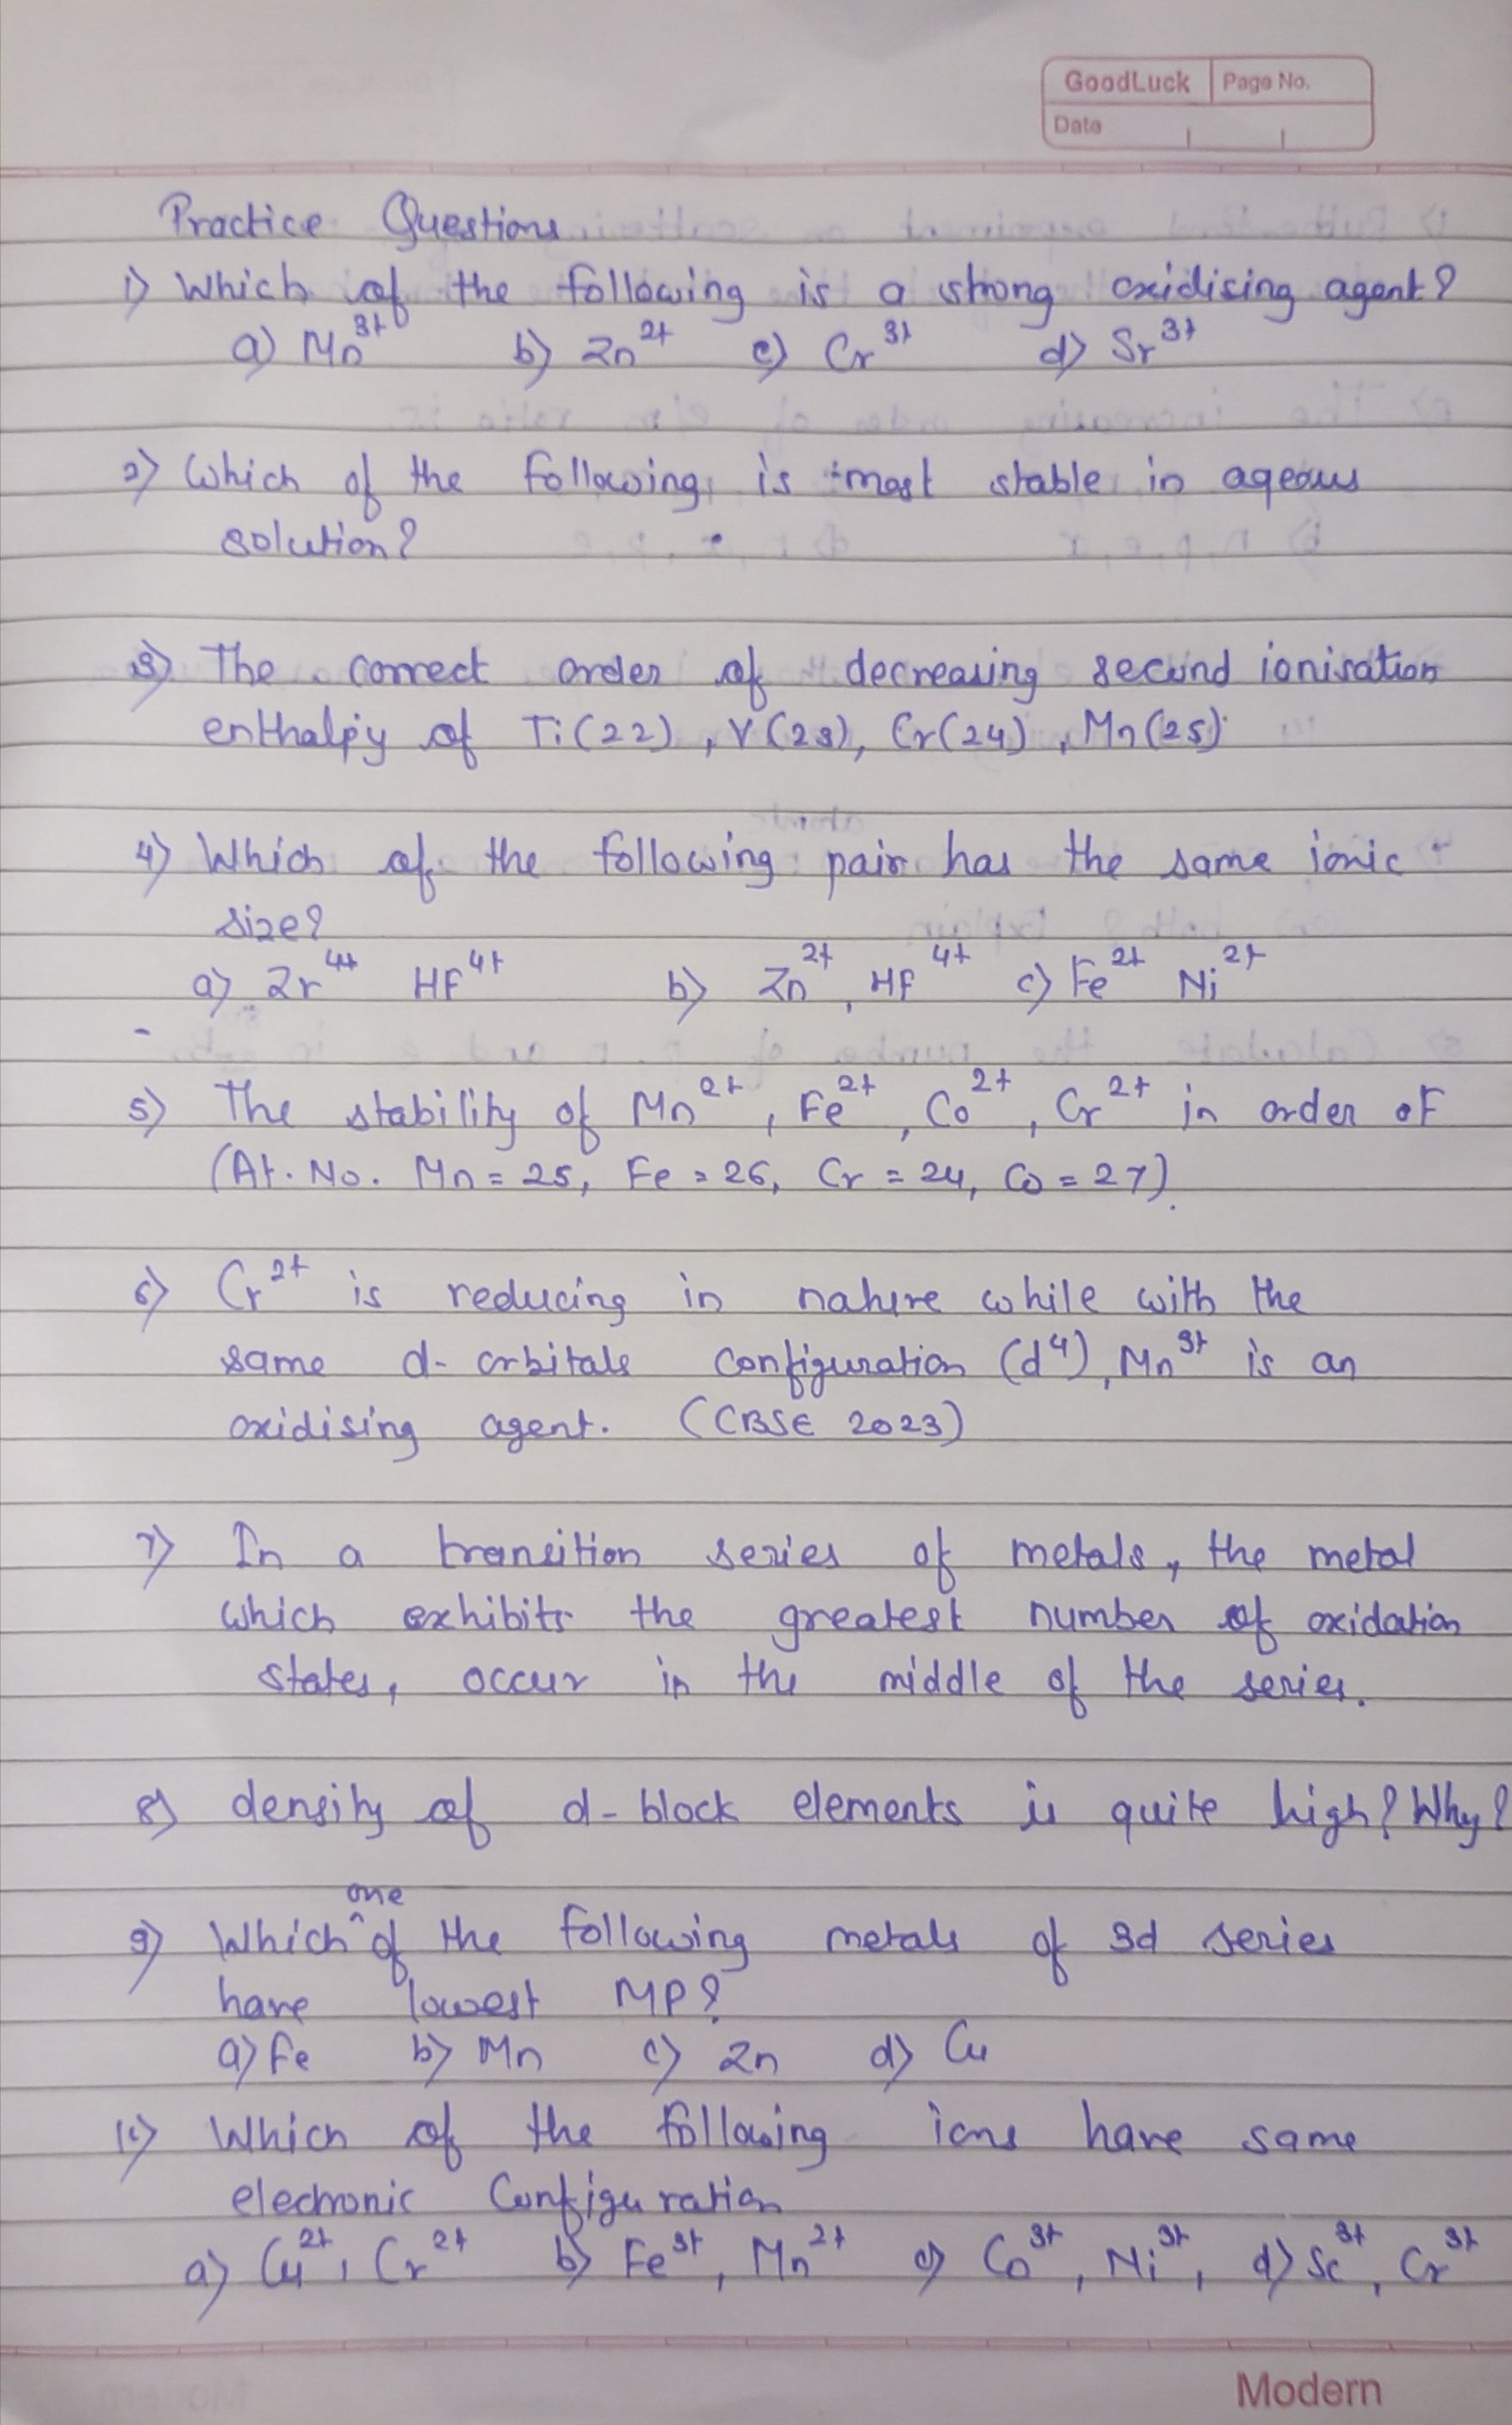 GoodLuck Page No.
Date
Practice Questions
1) Which of the following is a strong oxidising agent?
a) Mn³⁺ b) Zn²⁺ c) Cr³⁺ d) Sr³⁺
2) Which of the following is most stable in aqeous
solution?
3) The correct order of decreasing second ionisation
enthalpy of Ti(22), V(23), Cr(24), Mn(25)
4) Which of the following pair has the same ionic
size?
a) Zr⁴⁺ HF⁴⁺ b) Zn²⁺, Hf⁴⁺ c) Fe²⁺ Ni²⁺
5) The stability of Mn²⁺, Fe²⁺, Co²⁺, Cr²⁺ in order of
(At. No. Mn = 25, Fe = 26, Cr = 24, Co = 27).
6) Cr²⁺ is reducing in nature while with the
same d-orbitals configuration (d⁴), Mn³⁺ is an
oxidising agent. (CBSE 2023)
7) In a transition series of metals, the metal
which exhibits the greatest number of oxidation
states, occur in the middle of the series.
8) density of d-block elements is quite high? Why?
9) Which one of the following metals of 3d series
have lowest MP?
a) Fe b) Mn c) Zn d) Cu
10) Which of the following ions have same
electronic Configuration
a) Cu²⁺, Cr²⁺ b) Fe³⁺, Mn²⁺ c) Co³⁺, Ni³⁺, d) Sc³⁺, Cr³⁺
Modern